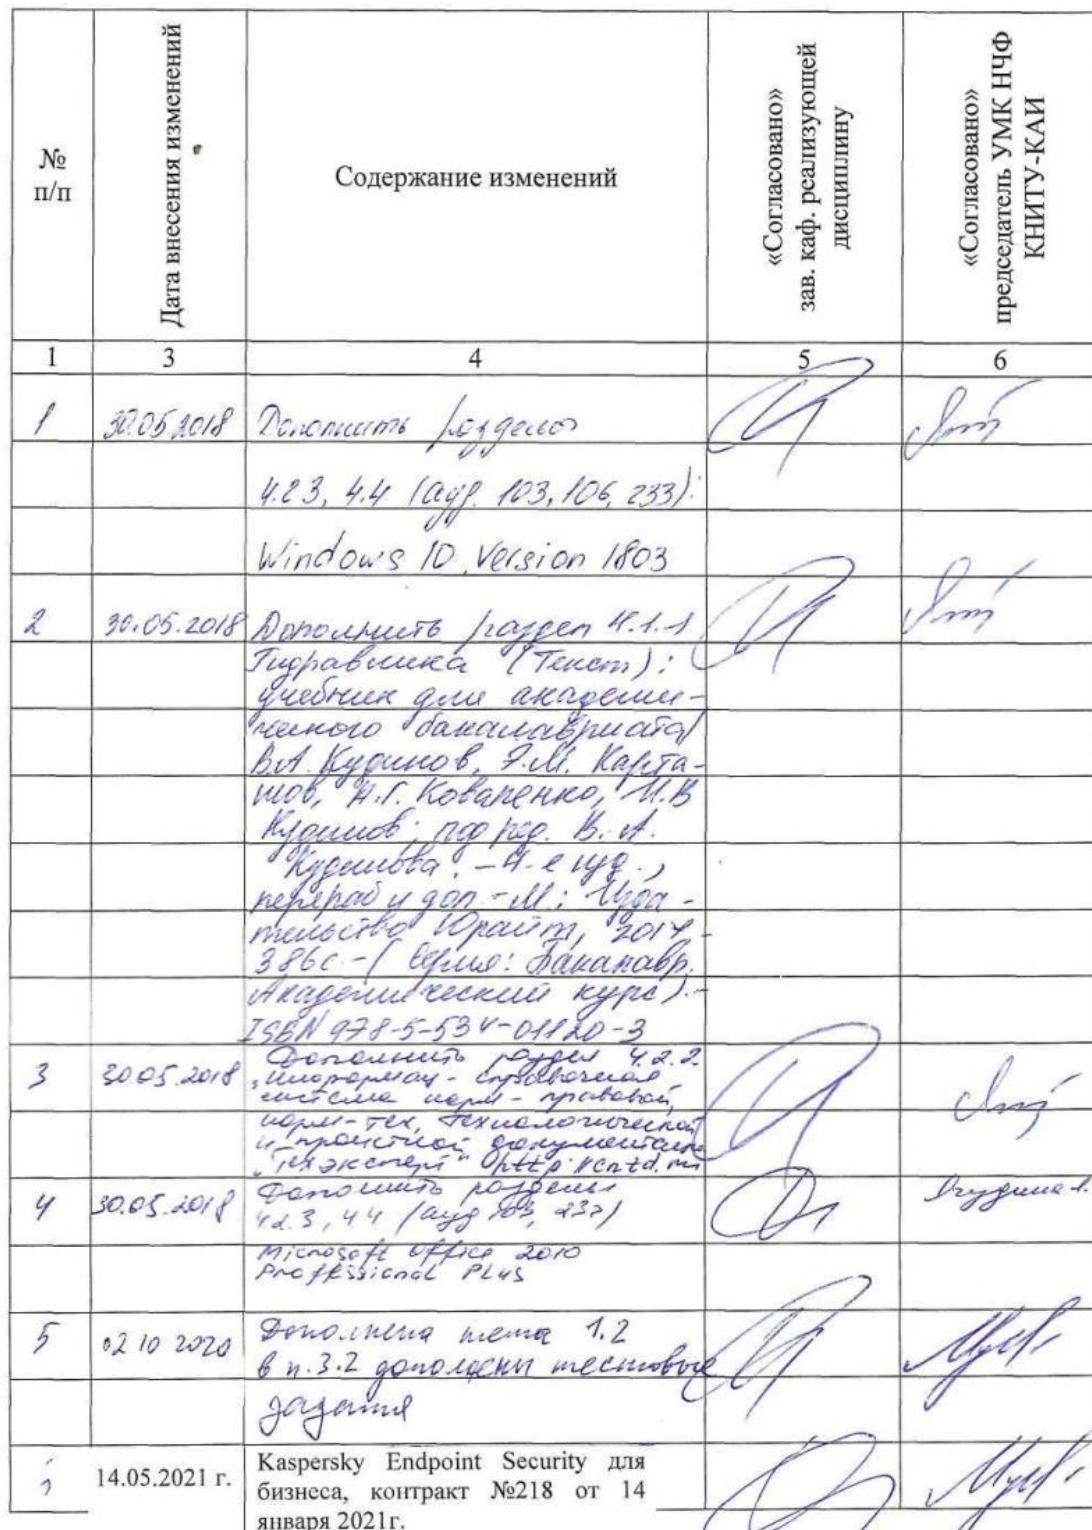 №
п/п
Дата внесения изменений
Содержание изменений
«Согласовано»
зав. каф. реализующей
дисциплину
«Согласовано»
председатель УМК НЧФ
КНИТУ-КАИ
1 3 4 5 6
1 30.05.2018 Дополнить разделы
4.2.3, 4.4 (ауд. 103, 106, 233):
Windows 10, Version 1803
2 30.05.2018 Дополнить раздел 4.1.1
Гидравлика (Текст):
учебник для академи-
ческого бакалавриата/
В.А. Кудинов, Э.М. Карта-
шов, А.Г. Коваленко, И.В
Кудинов; под ред. В. А.
Кудинова. - 4-е изд.,
перераб и доп - М.: Изда-
тельство Юрайт, 2017 -
386с. - (Серия: Бакалавр.
Академический курс). -
ISBN 978-5-534-01120-3
3 30.05.2018 Дополнить раздел 4.2.2.
справочная
система норм- правовой,
норм-тех, технологической
и проектной
"Техэксперт" http://cntd.ru
4 30.05.2018 Дополнить разделы
4.2.3, 4.4 (ауд 103,
Microsoft office 2010
Proffssional PLus
5 02 10 2020 Дополнена тема 1.2
в п.3.2 дополнены тестовые
задания
14.05.2021 г. Kaspersky Endpoint Security для
бизнеса, контракт №218 от 14
января 2021г.